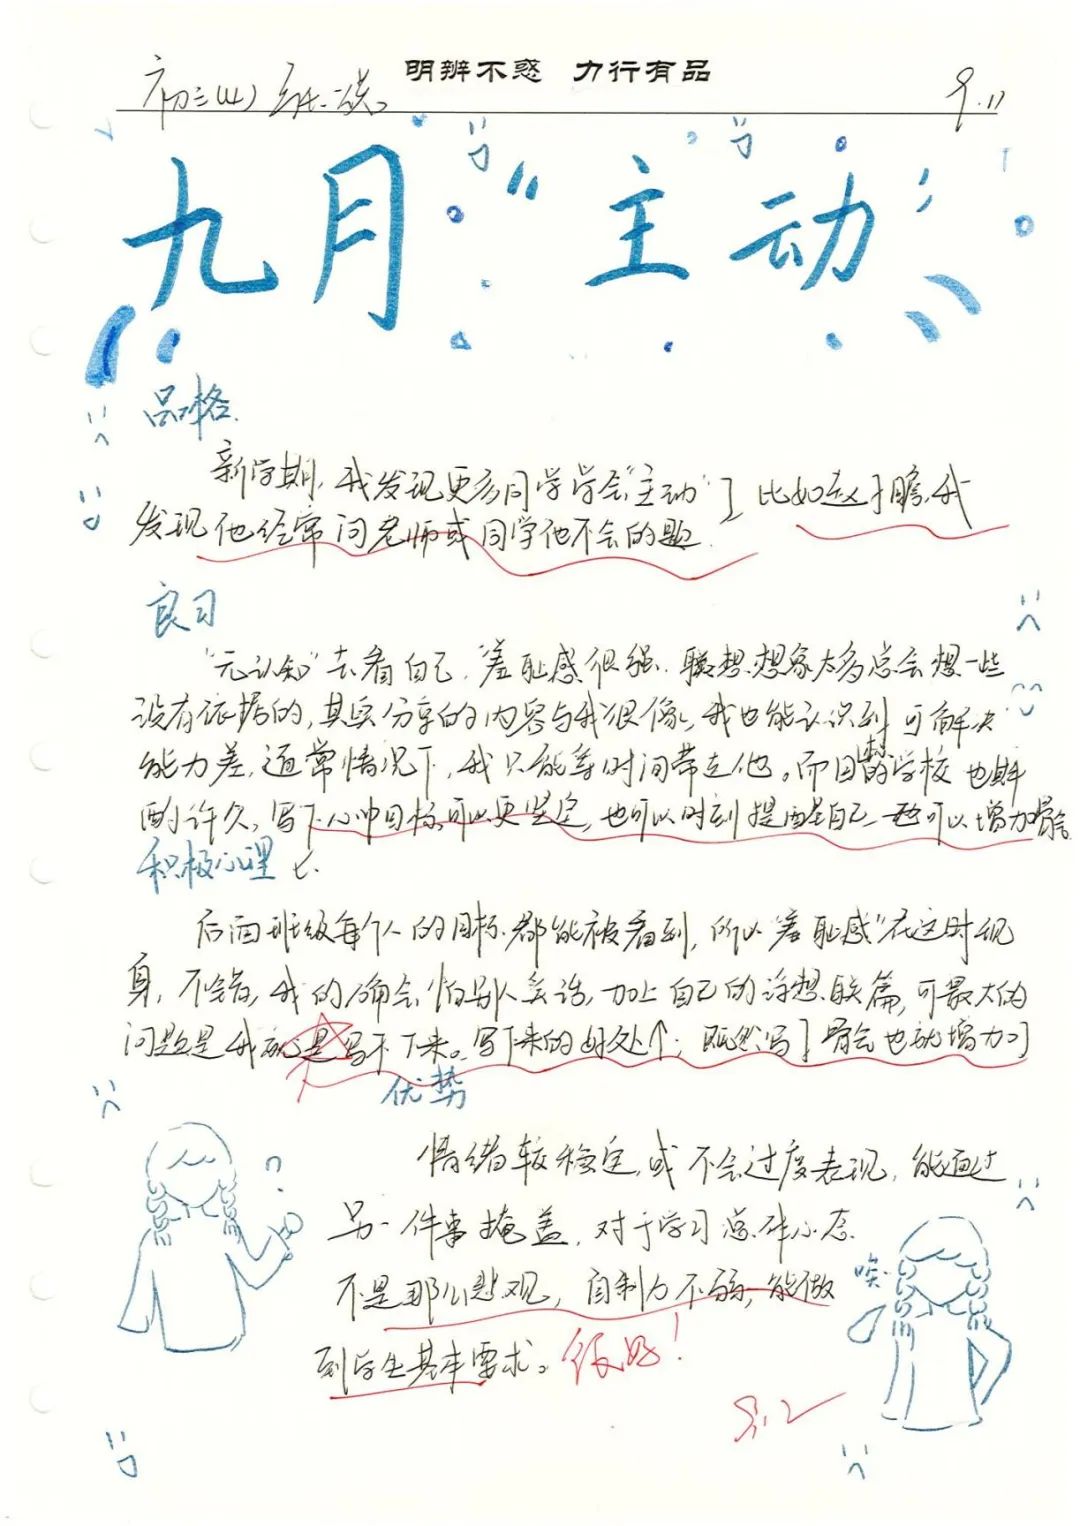 明辨不惑 力行有品
初三(4)
9.11
九月“主动”
品格.
新学期,我发现更多同学学会“主动”了 比如赵子瞻,我
发现他经常问老师或同学他不会的题.
良习
“元认知”去看自己,羞耻感很强.联想.想象太多总会想一些
没有依据的,其实分享的内容与我很像。我也能认识到 可解决
能力差,通常情况下,我只能等时间带走他。而目标学校也斟
酌许久,写下心中目标可以更坚定,也可以时刻提醒自己 可以增加
积极心理
后面班级每个人的目标.都能被看到,所以“羞耻感”在这时现
身,不错,我的确会怕别人笑话,加上自己的浮想联篇,可最大的
问题是我就是写不下来。写下来的好处↑;既然写了 也就增加了
优势
情绪较稳定,或不会过度表现,能通过
另一件事掩盖,对于学习总体心态
不是那么悲观,自制力不弱,能做
到学生基本要求。很好!
唉.
9.12